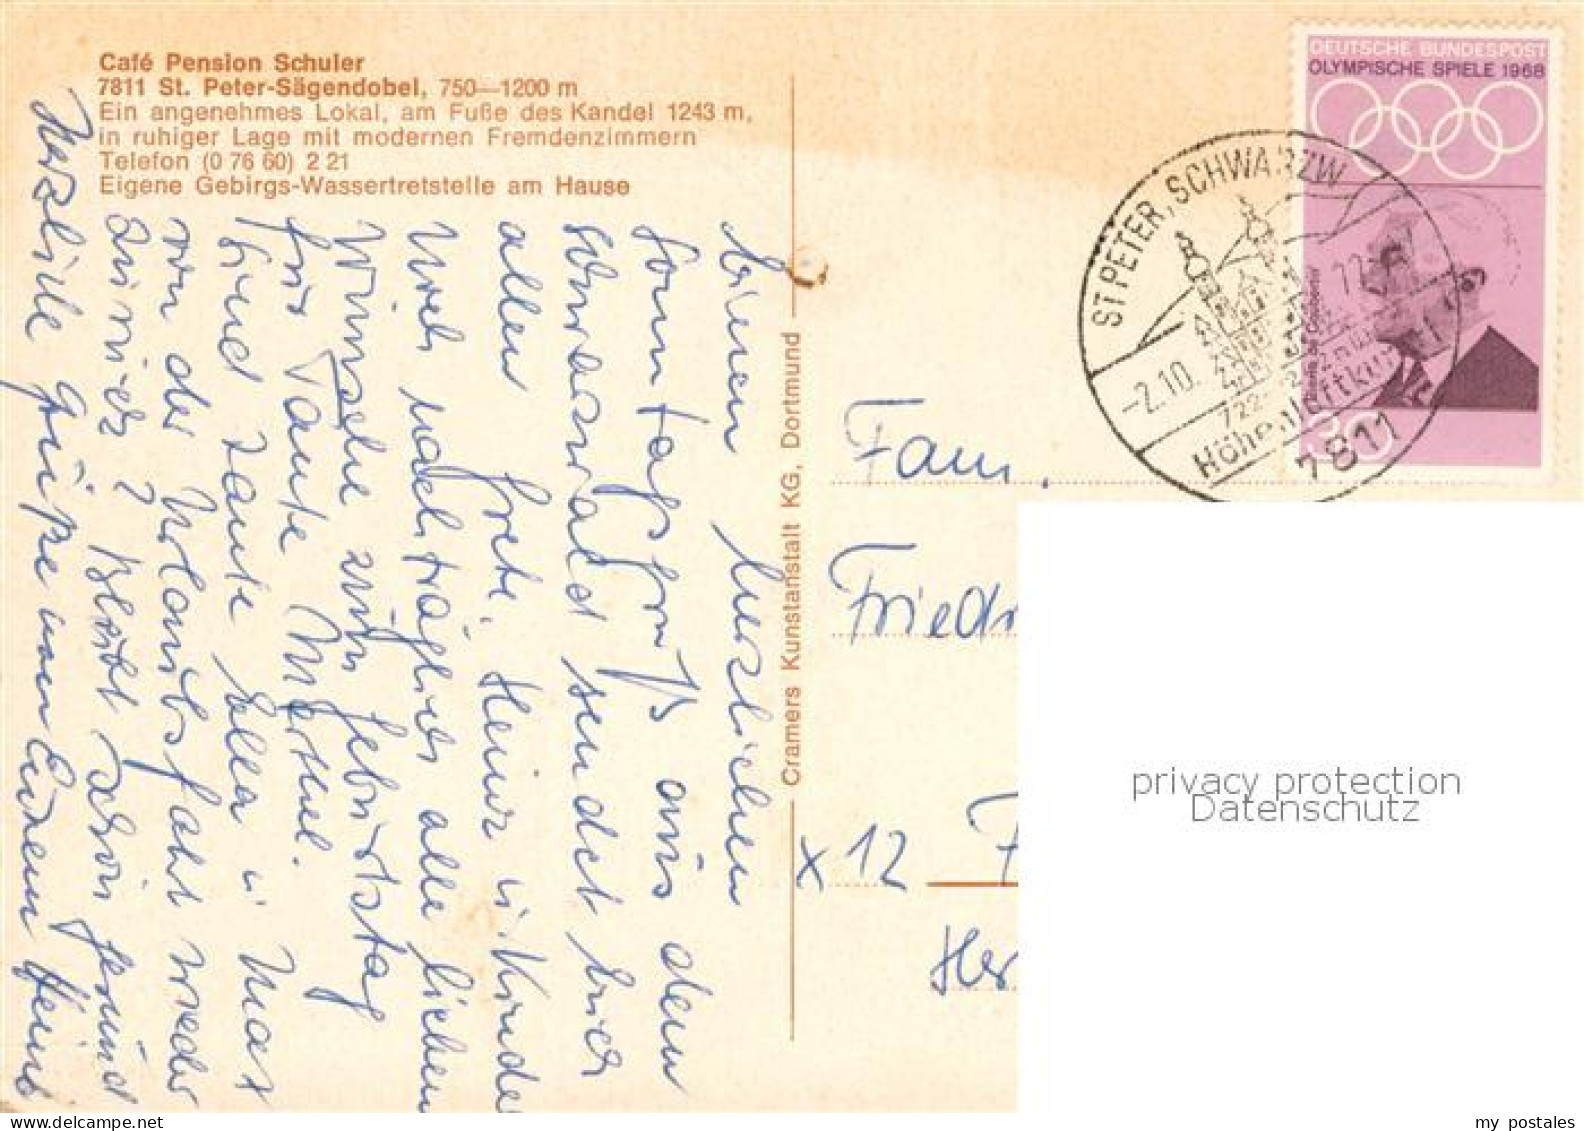 Café Pension Schuler
7811 St. Peter-Sägendobel, 750—1200 m
Ein angenehmes Lokal, am Fuße des Kandel 1243 m,
in ruhiger Lage mit modernen Fremdenzimmern
Telefon (0 76 60) 2 21
Eigene Gebirgs-Wassertretstelle am Hause
Einen herzlichen
Sonntagsgruß aus dem
Schwarzwald sendet hier
allen Grete, Heinz u. Kinder
Noch nachträglich alle lieben
Wünsche zum Geburtstag
für Tante
Sind Tante Ella u Max
von der Urlaubsfahrt wieder
zurück? Bleibt schön gesund
Herzliche Grüße von Eurem Heinz
Cramers Kunstanstalt KG, Dortmund
DEUTSCHE BUNDESPOST
OLYMPISCHE SPIELE 1968
30
ST PETER, SCHWARZW
-2.10.
722-
Höhenluftkurort
7811
Fam.
Friedr
x 12
Her
privacy protection
Datenschutz
my postales